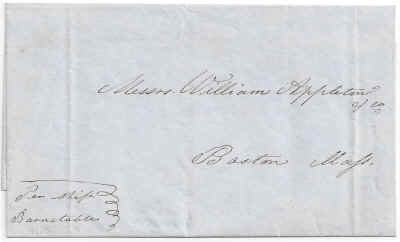 Messrs. William Appleton
& Co
Boston Mass.
Per Ship
Barnstable